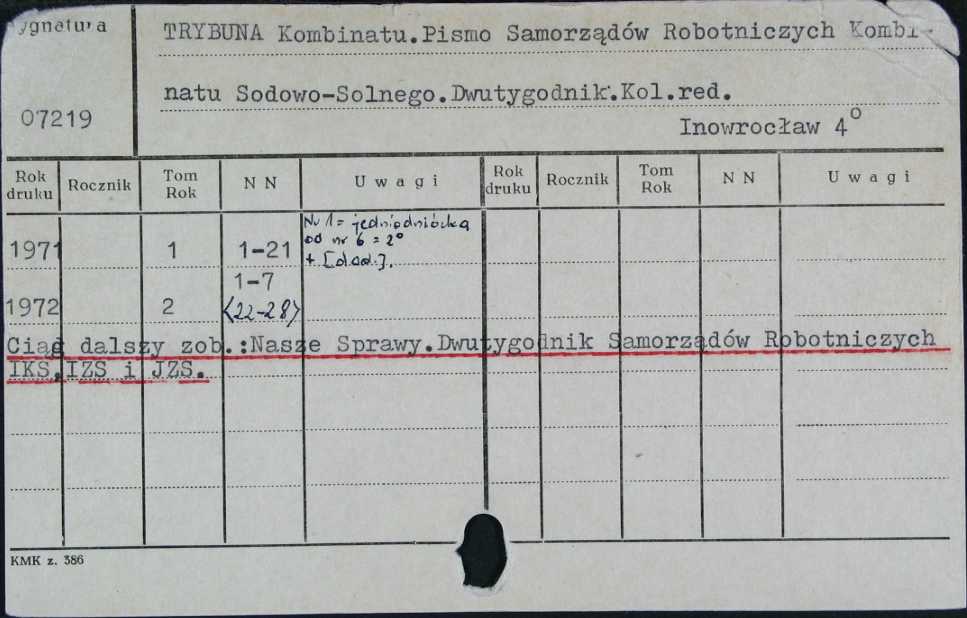 ygnatura
TRYBUNA Kombinatu.Pismo Samorządów Robotniczych Kombi-
natu Sodowo-Solnego.Dwutygodnik.Kol.red.
07219
Inowrocław 4°
Rok druku Rocznik Tom Rok N N Uwagi Rok druku Rocznik Tom Rok N N Uwagi
1971 1 1-21 Nr 1 = jednodniówka
od nr 6 = 2°
+ [dod.].
1972 2 1-7
<22-28>
Ciąg dalszy zob.:Nasze Sprawy.Dwutygodnik Samorządów Robotniczych
IKS,IZS i JZS.
KMK z. 386